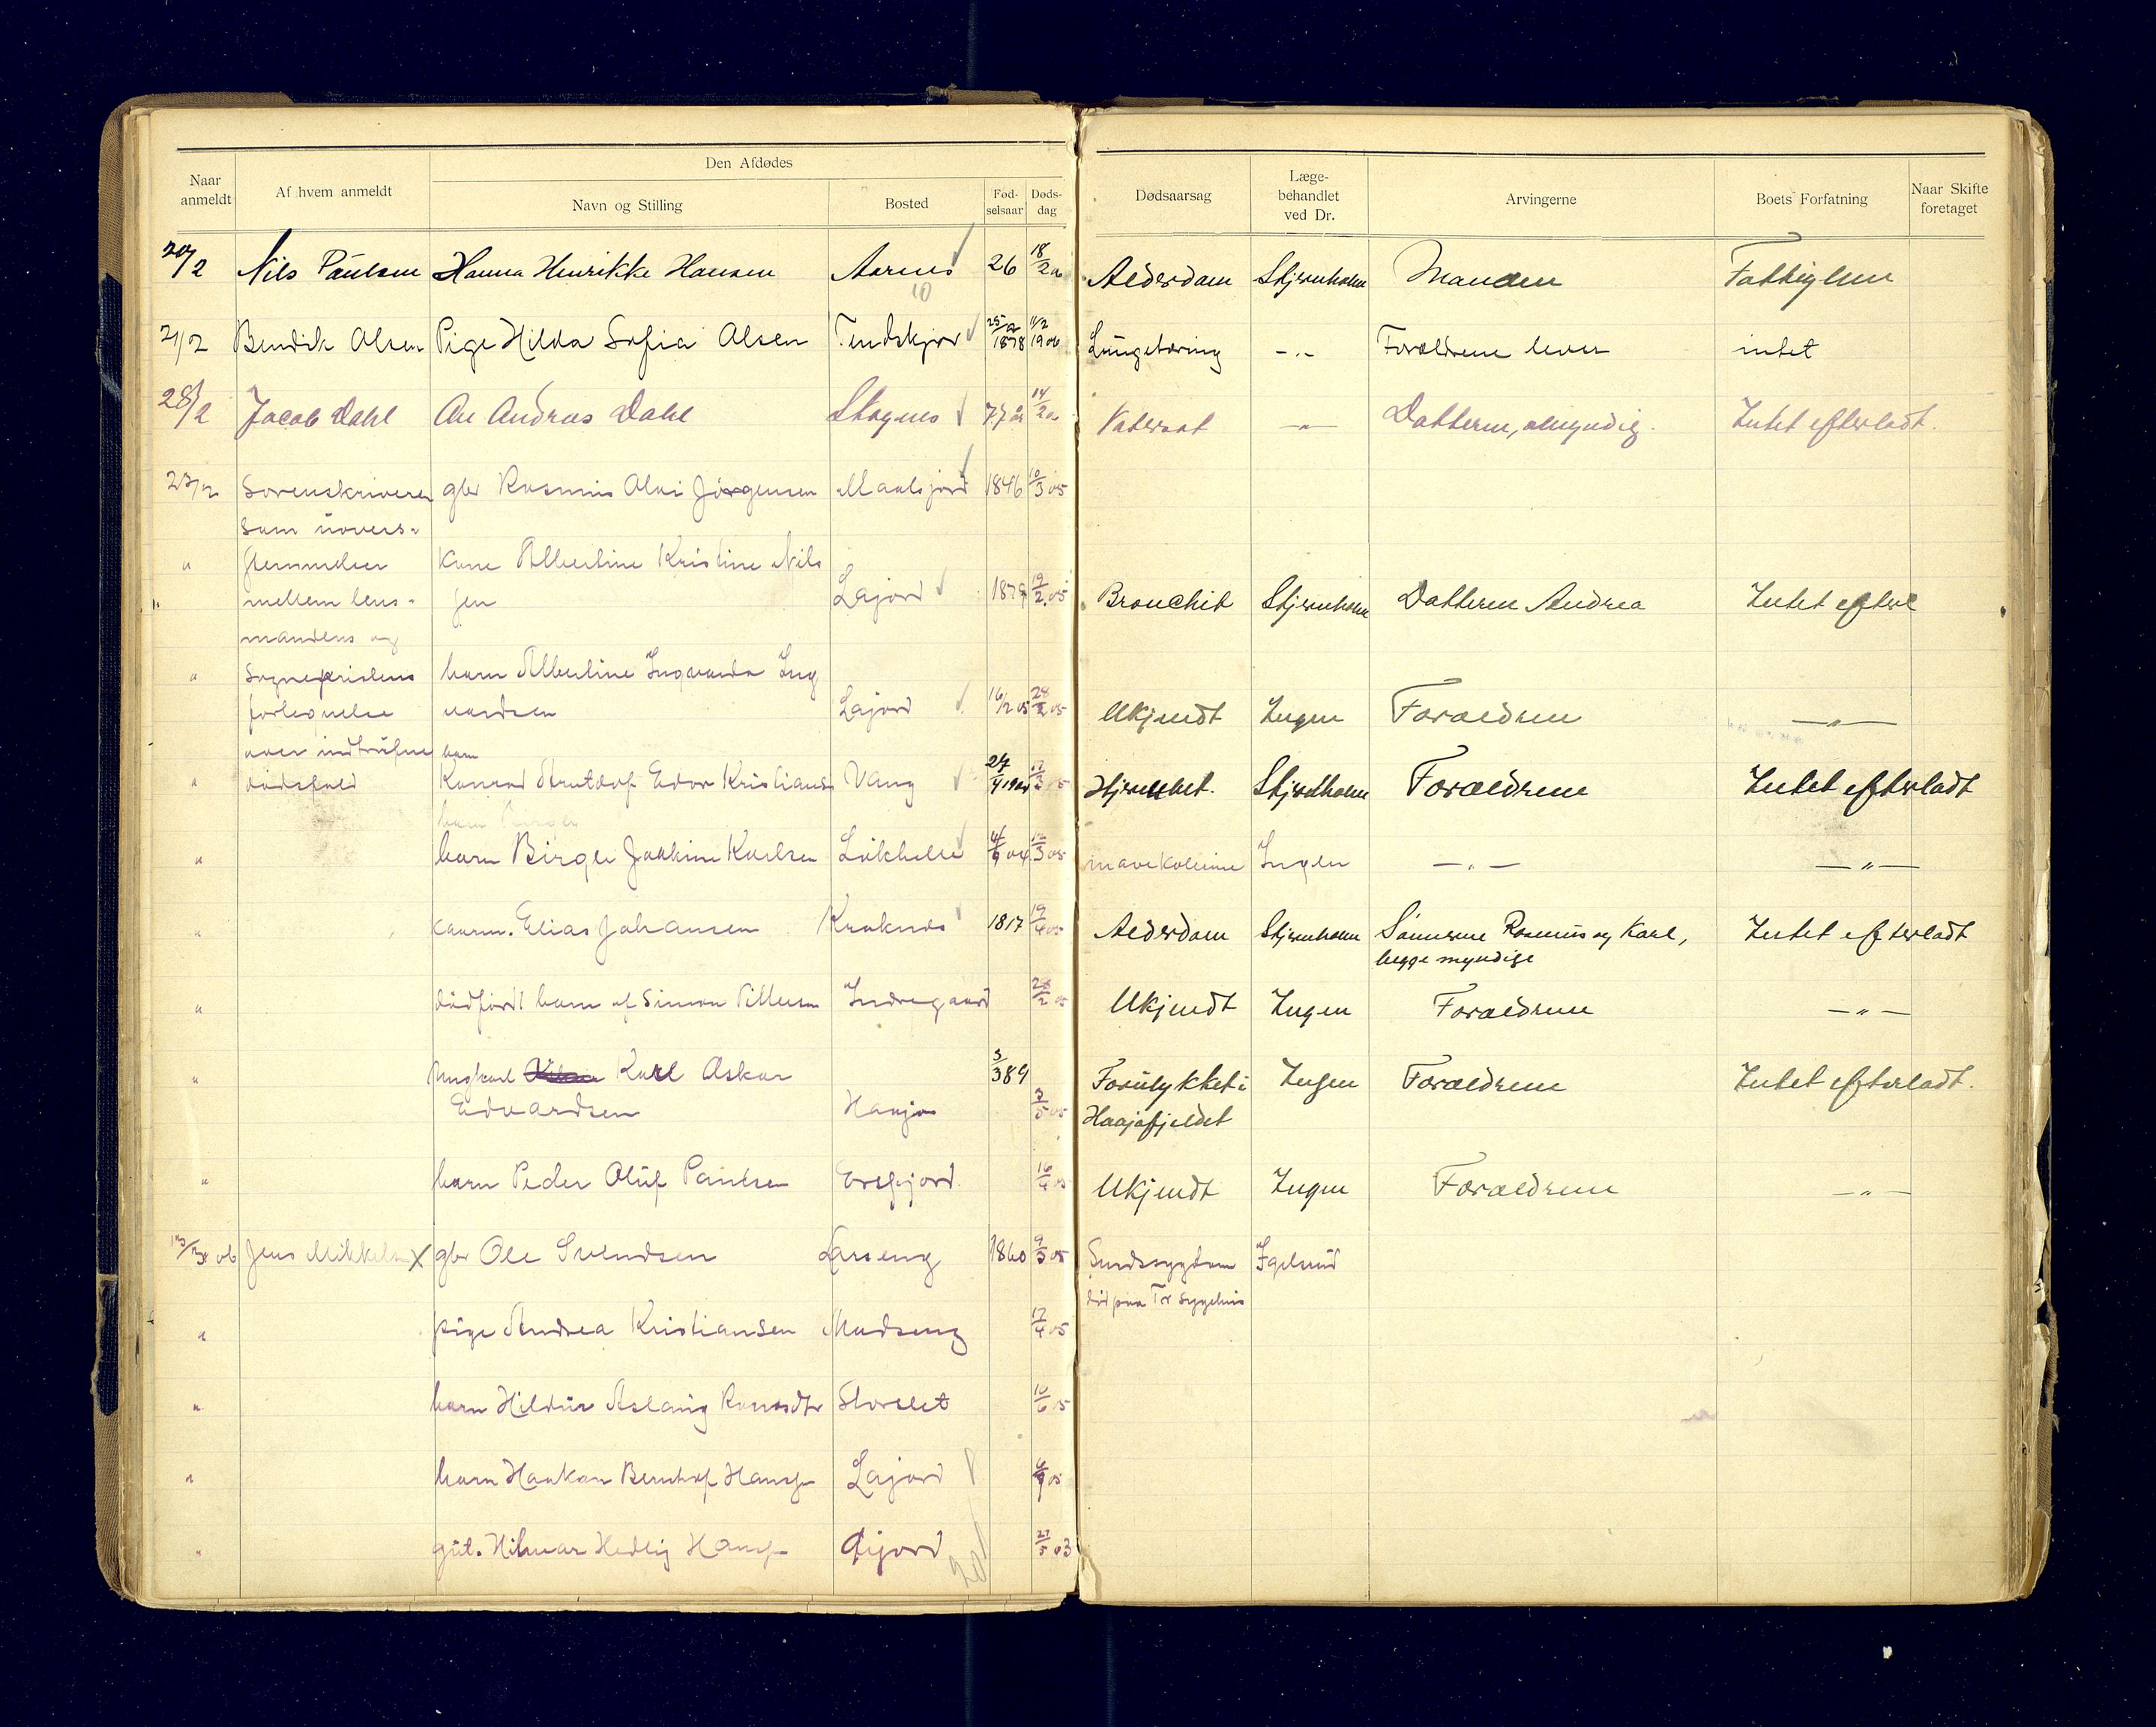 Naar anmeldt | Af hvem anmeldt | Den Afdødes | Dødsaarsag | Læge-behandlet ved Dr. | Arvingerne | Boets Forfatning | Naar Skifte foretaget
Navn og Stilling | Bosted | Fød-selsaar | Døds-dag
20/2 Nils Paulsen Hanna Henrikke Hansen Aarnes 26 18/2 Alderdom Stjernholm Manden Fattiglem
10
21/2 Bendik Olsen Pige Hilda Sofia Olsen Tendskjær 25/2 1878 11/2 1906 Lungetæring -"- Forældrene lever intet
28/2 Jacob Dahl Andreas Dahl 77 14/2 —"— Datteren, umyndig. Intet efterladt.
23/2 Sorenskriveren gbr Rasmus Jørgensen Maalsjord 1846 10/3 05
som uovers-
" stemmelser Kone Albertine Kristine Nils
mellem lens- sen Lajord 1879 19/2 05 Bronchit Stjernholm Datteren Andrea Intet efterl
mandens og
" Sogneprestens barn Albertine Ingvarda Ing
fortegnelse vardsen Lajord 16/2 05 28/2 05 Ukjendt Ingen Forældrene —"—
over indtrufne barn
" dødsfald Konrad Edor Kristians Vang 27/4 1904 05 Stjernholm Forældrene Intet efterladt
" barn Birger Joakim Karlsen 04 05 Ingen —"— —"—
" Elias Johansen Kraknes 1817 19/4 05 Alderdom Stjernholm Sønnerne Rasmus og Karl, Intet efterladt
begge myndige
" dødfødt barn af Simon Tillesen Indregaard 2 05 Ukjendt Ingen Forældrene —"—
" Ungkarl Karl Oskar 3/3 89 Forulykket i Ingen Forældrene Intet efterladt.
Edvardsen Haaja 3/5 05 Haajafjeldet
" barn Peder Oluf Paulsen Ersfjord 16/4 05 Ukjendt Ingen Forældrene —"—
13/3 06 Jens Mikkelsen X gbr Ole Svendsen Larseng 1860 9/3 05 Sindssygdom
død paa Tr. sygehus
" pige Andrea Kristiansen Madseng 17/4 05
" barn Hildur Aslaug Storslet 10/6 05
" barn Haakon Bernhof Hansen Lajord 05
" gut. Hilmar Hedlig Hansen 27/5 03
20